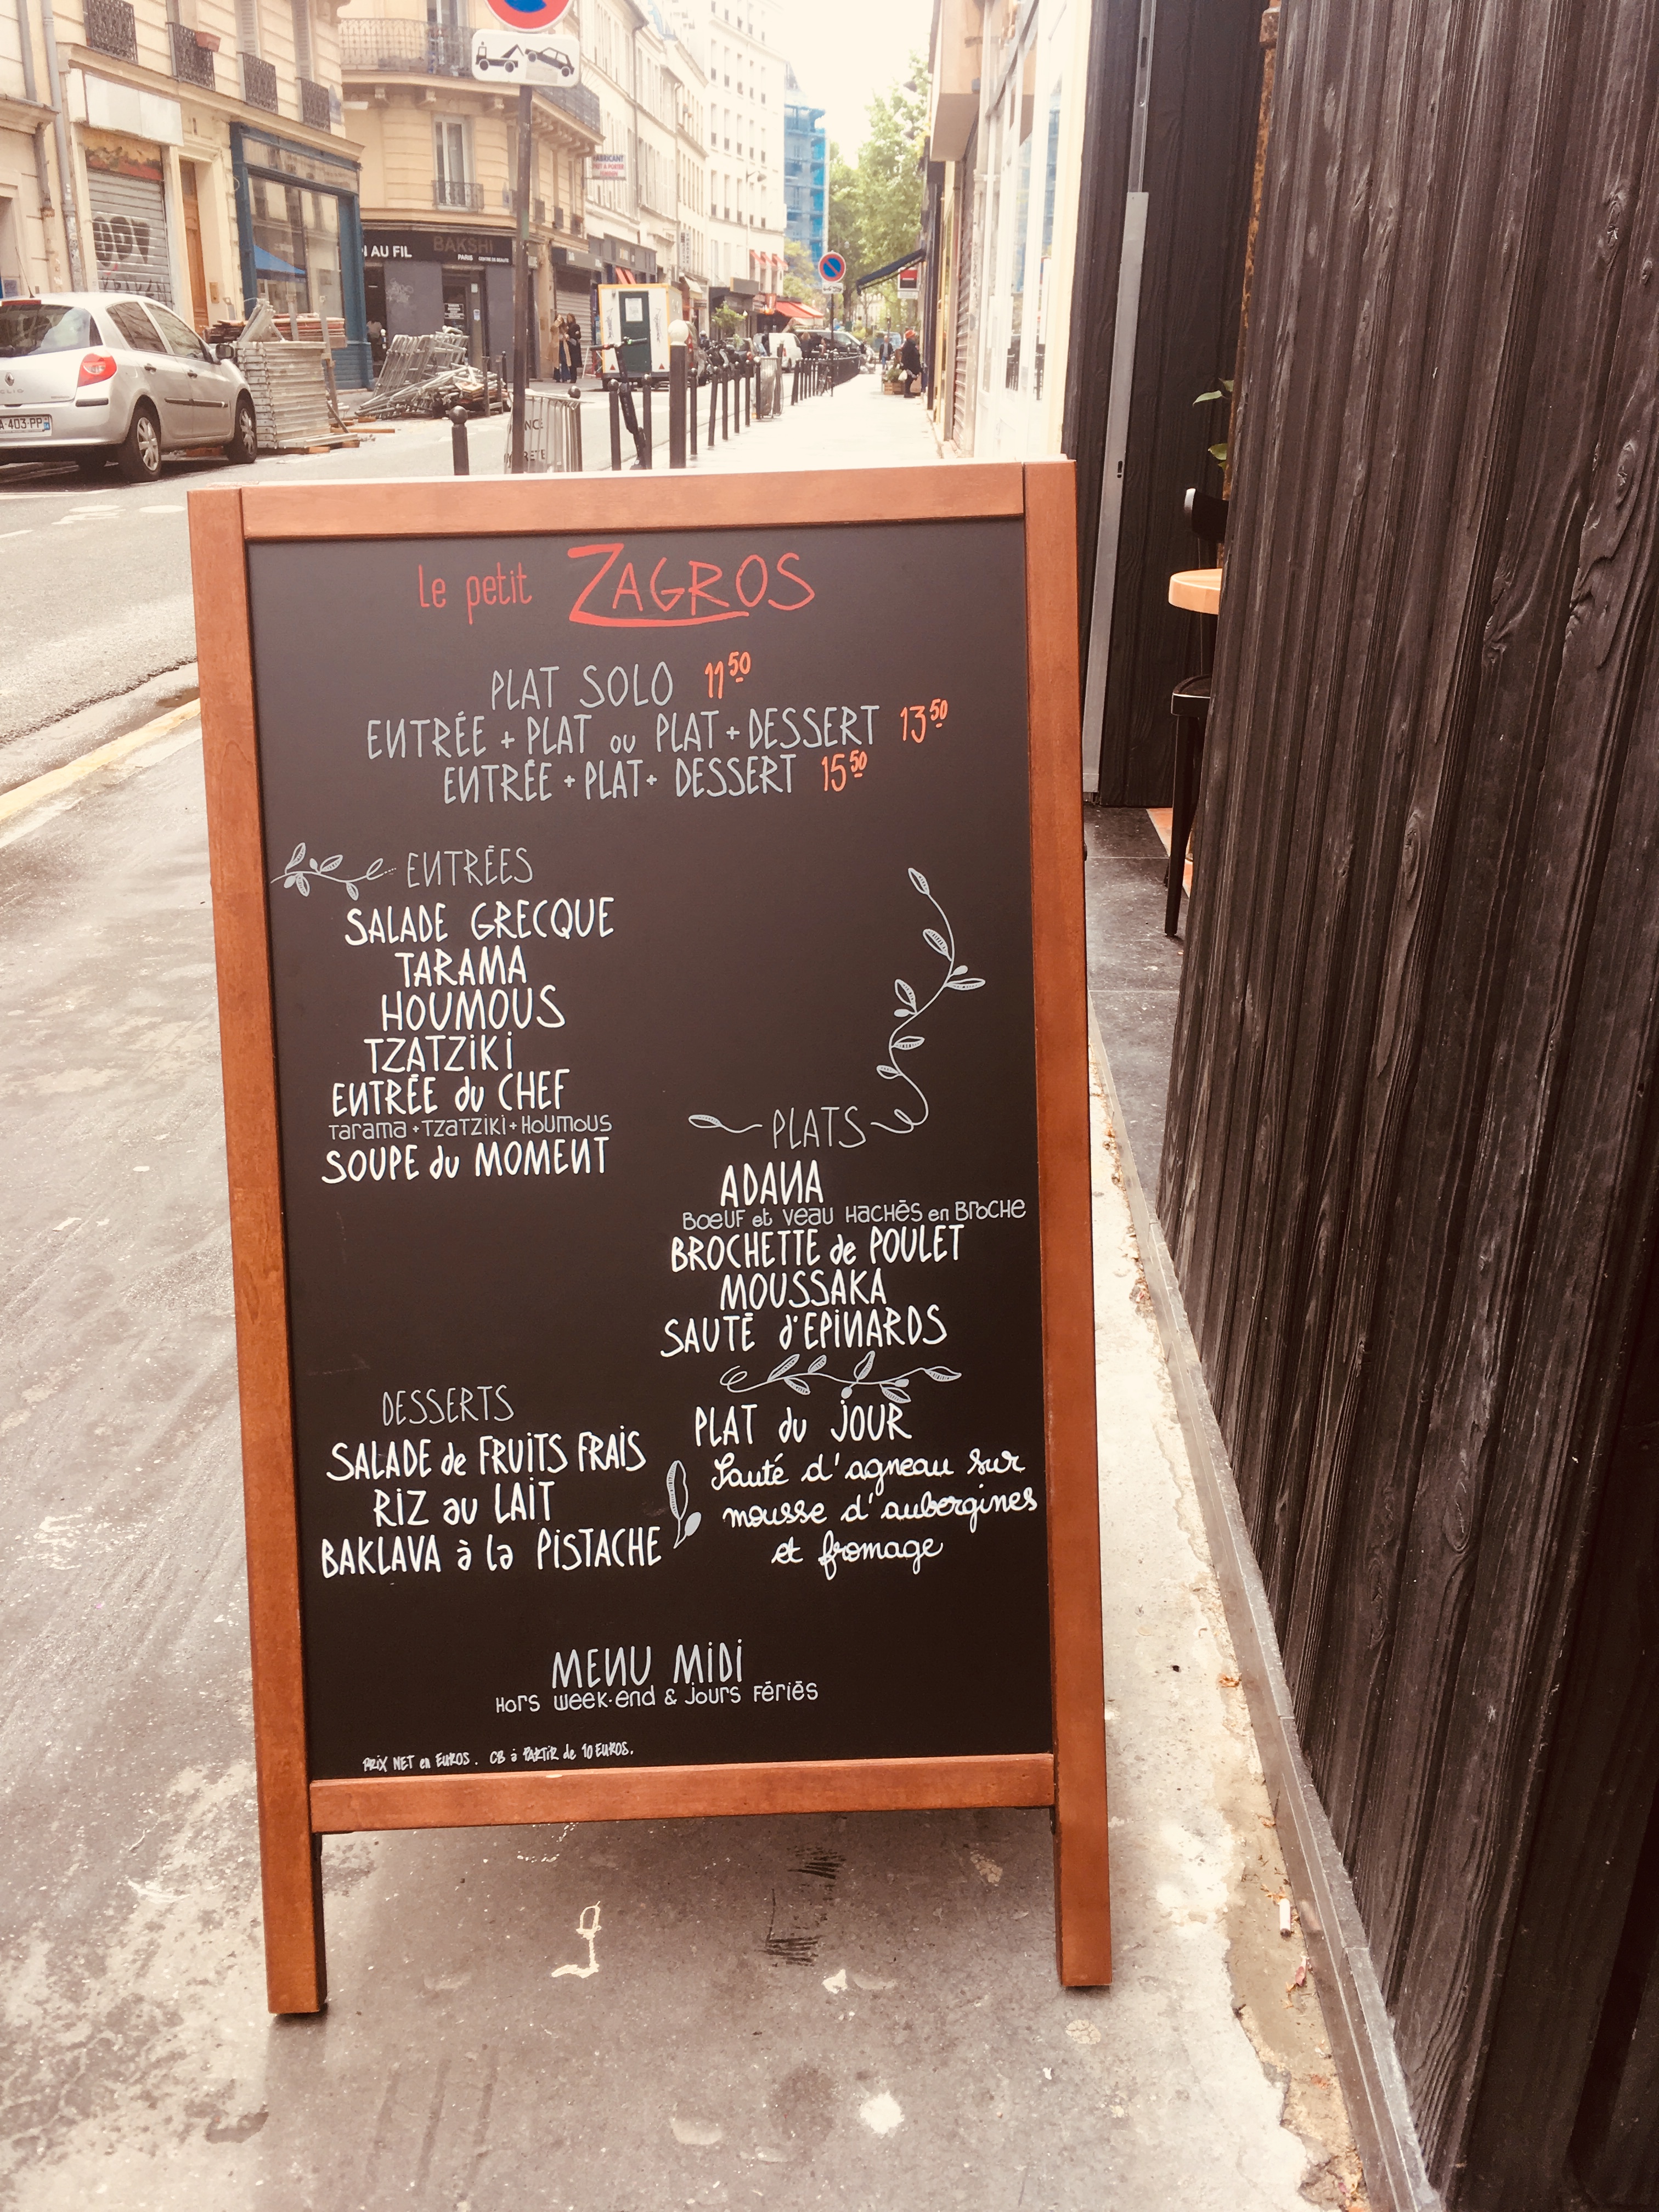 I AU FIL
BAKSHI
PARIS
FABRICANT
A-403-PP
Le petit ZAGROS
PLAT SOLO 11 50
ENTRÉE + PLAT ou PLAT + DESSERT 13 50
ENTRÉE + PLAT + DESSERT 15 50
ENTRÉES
SALADE GRECQUE
TARAMA
HOUMOUS
TZATZIKI
ENTRÉE du CHEF
Tarama + TZATZIKI + HOUMOUS
SOUPE du MOMENT
PLATS
ADANA
BOEUF et VEAU HACHÉS en BROCHE
BROCHETTE de POULET
MOUSSAKA
SAUTÉ d'EPINARDS
DESSERTS
SALADE de FRUITS FRAIS
RIZ au LAIT
BAKLAVA à la PISTACHE
PLAT du JOUR
Sauté d'agneau sur
mousse d'aubergines
et fromage
MENU MIDI
HORS WEEK-END & JOURS FÉRIÉS
PRIX NET en EUROS. CB à PARTIR de 10 EUROS.